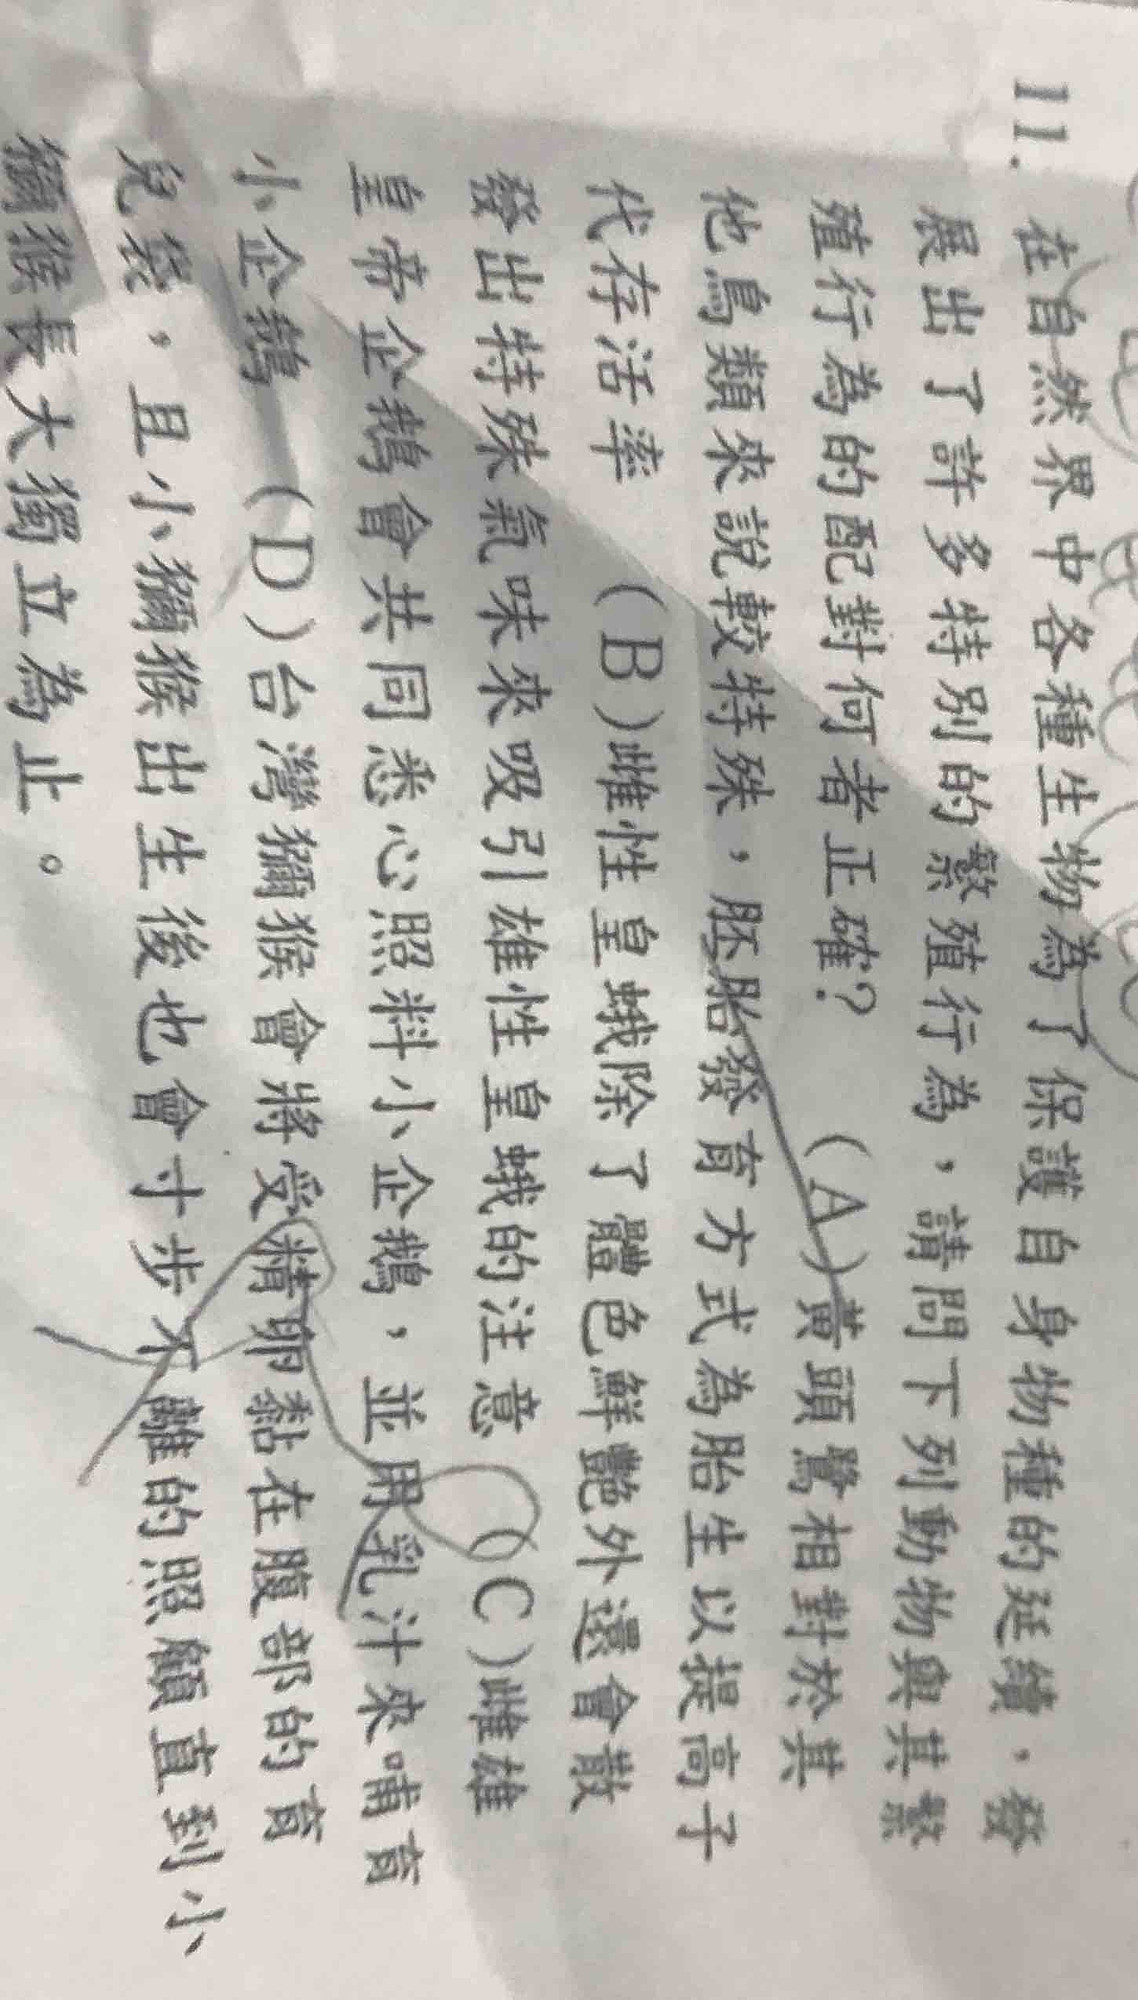 11. 在自然界中各種生物為了保護自身物種的延續，發
展出了許多特別的繁殖行為，請問下列動物與其繁
殖行為的配對何者正確？ (A)黃頭鷺相對於其
他鳥類來說較特殊，胚胎發育方式為胎生以提高子
代存活率 (B)雌性皇蛾除了體色鮮艷外還會散
發出特殊氣味來吸引雄性皇蛾的注意 (C)雌雄
皇帝企鵝會共同悉心照料小企鵝，並用乳汁來哺育
小企鵝 (D)台灣獼猴會將受精卵黏在腹部的育
兒袋，且小獼猴出生後也會寸步不離的照顧直到小
獼猴長大獨立為止。